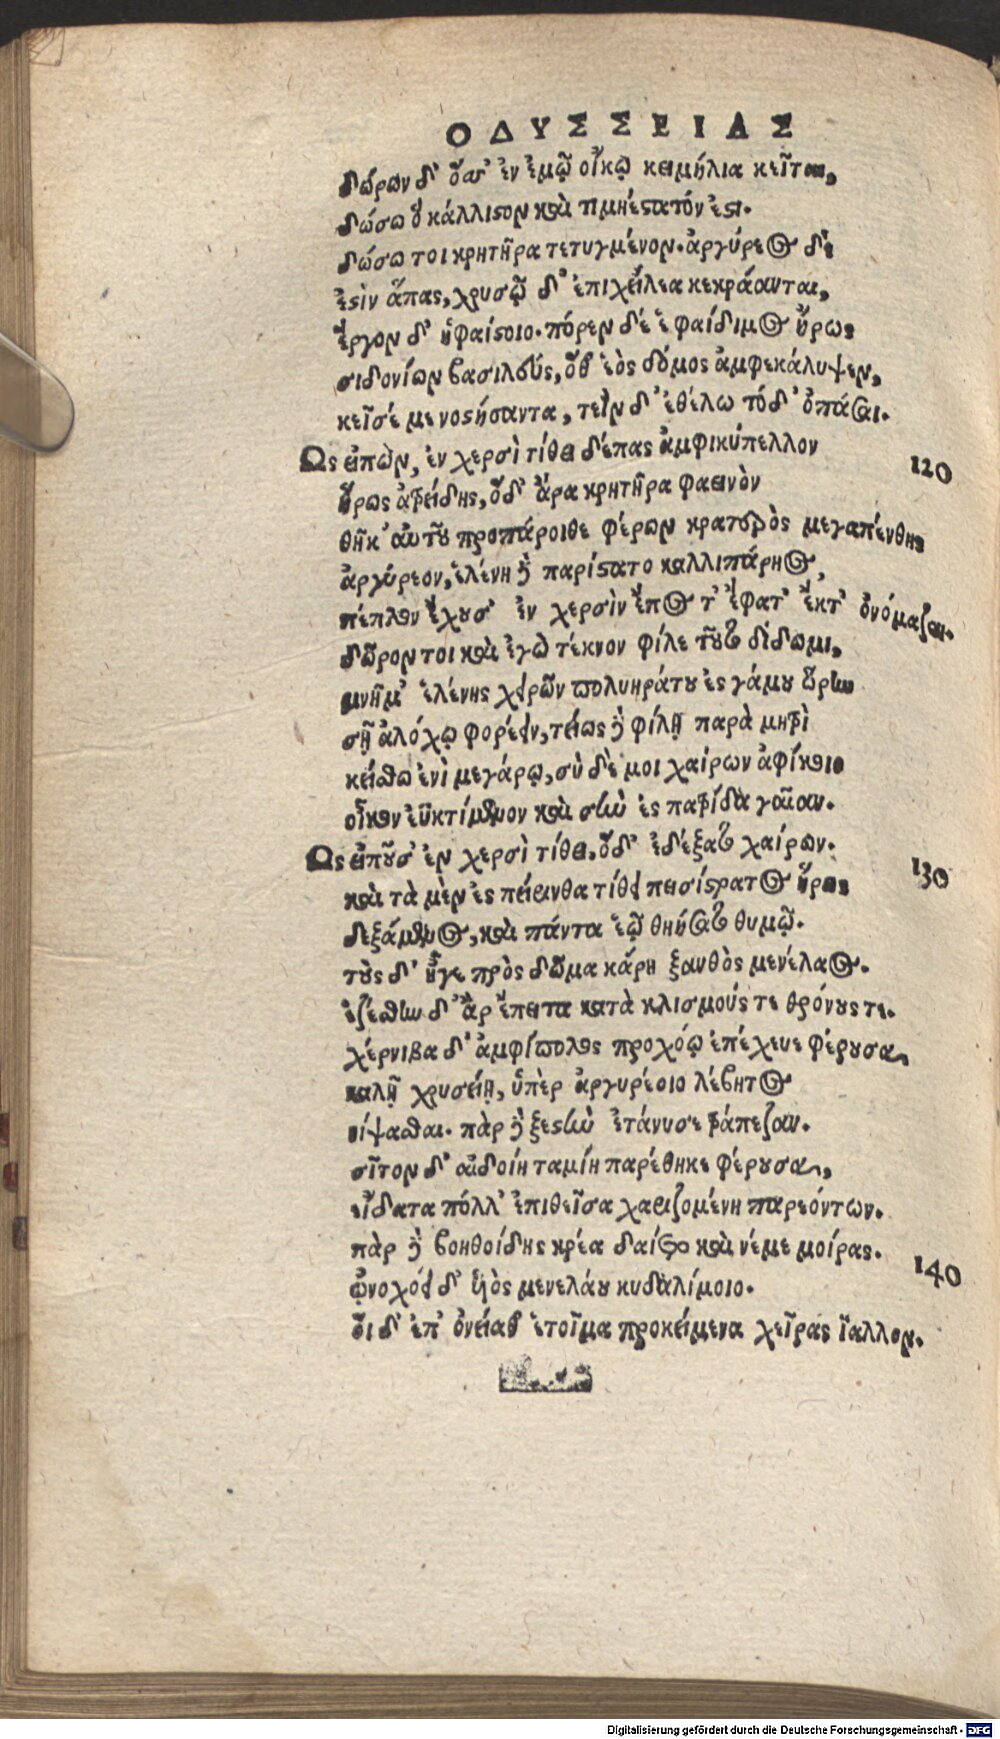 ΟΔΥΣΣΕΙΑΣ
δώρων δ' ὅσσ' ἐν ἐμῷ οἴκῳ κειμήλια κεῖται,
δώσω ὃ κάλλιστον καὶ τιμηέστατόν ἐστι.
δώσω τοι κρητῆρα τετυγμένον. ἀργύρεος δὲ
ἐστὶν ἅπας, χρυσῷ δ' ἐπιχείλεα κεκράανται,
ἔργον δ' ἡφαίστοιο. πόρεν δέ ἑ φαίδιμος ἥρως
σιδονίων βασιλεύς, ὅθ' ἑὸς δόμος ἀμφεκάλυψεν,
κεῖσέ με νοστήσαντα, τεῒν δ' ἐθέλω τόδ' ὀπάσσαι.
Ὣς εἰπὼν, ἐν χερσὶ τίθει δέπας ἀμφικύπελλον 120
ἥρως ἀτρείδης, ὅδ' ἄρα κρητῆρα φαεινὸν
θῆκ' αὐτοῦ προπάροιθε φέρων κρατερὸς μεγαπένθης
ἀργύρεον, ἑλένη δὲ παρίστατο καλλιπάρηος,
πέπλον ἔχουσ' ἐν χερσὶν ἔπος τ' ἔφατ' ἔκτ' ὀνόμαζεν.
δῶρον τοι καὶ ἐγὼ τέκνον φίλε τοῦτο δίδωμι,
μνῆμ' ἑλένης χειρῶν πολυηράτου ἐς γάμου ὥρην
σῇ ἀλόχῳ φορέειν, τείως δὲ φίλῃ παρὰ μητρὶ
κείσθω ἐνὶ μεγάρῳ, σὺ δὲ μοι χαίρων ἀφίκοιο
οἶκον ἐϋκτίμενον καὶ σὴν ἐς πατρίδα γαῖαν.
Ὣς εἰποῦσ' ἐν χερσὶ τίθει, ὅδ' ἐδέξατο χαίρων. 130
καὶ τὰ μὲν ἐς πείρινθα τίθει πεισίστρατος ἥρως
δεξάμενος, καὶ πάντα ἑῷ θηήσατο θυμῷ.
τοὺς δ' ἦγε πρὸς δῶμα κάρη ξανθὸς μενέλαος.
ἑζέσθην δ' ἂρ ἔπειτα κατὰ κλισμούς τε θρόνους τε.
χέρνιβα δ' ἀμφίπολος προχόῳ ἐπέχευε φέρουσα,
καλῇ χρυσείῃ, ὑπὲρ ἀργυρέοιο λέβητος
νίψασθαι. πὰρ δὲ ξεστὴν ἐτάνυσε τράπεζαν.
σῖτον δ' αἰδοίη ταμίη παρέθηκε φέρουσα,
εἴδατα πόλλ' ἐπιθεῖσα χαριζομένη παρεόντων.
πὰρ δὲ βοηθοίδης κρέα δαίετο καὶ νέμε μοίρας. 140
ᾠνοχόει δ' υἱὸς μενελάου κυδαλίμοιο.
οἱ δ' ἐπ' ὀνείαθ' ἑτοῖμα προκείμενα χεῖρας ἴαλλον.
Digitalisierung gefördert durch die Deutsche Forschungsgemeinschaft - DFG